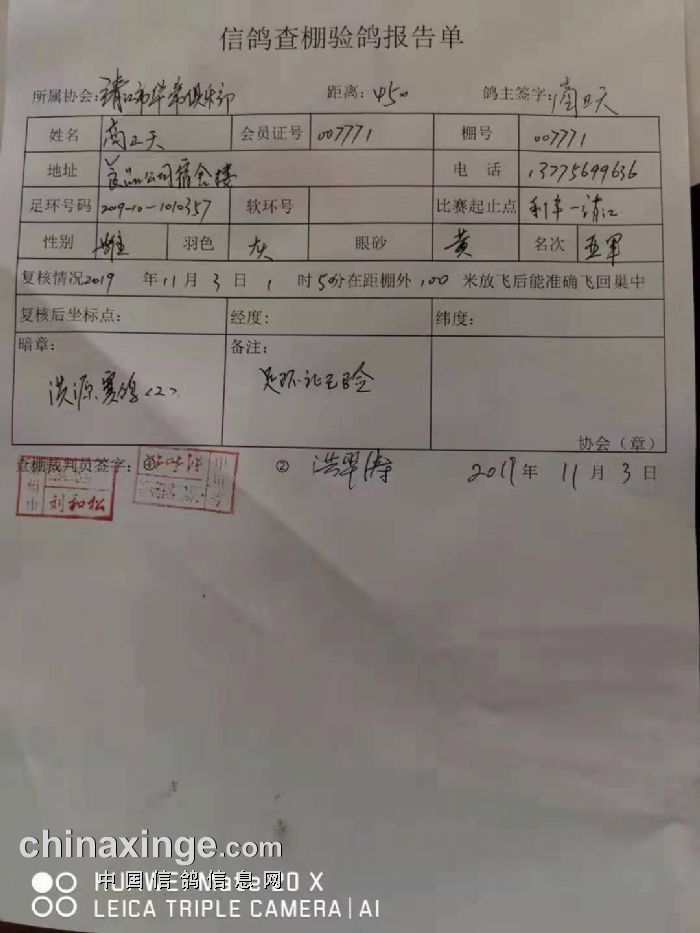 信鸽查棚验鸽报告单
所属协会: 靖江市华常俱乐部 距离: 450 鸽主签字:
姓名 商卫天 会员证号 007771 棚号 007771
地址 食品公司宿舍楼 电 话 13775699636
足环号码 2019-10-1010357 软环号 比赛起止点 利辛—靖江
性别 雄 羽色 灰 眼砂 黄 名次 亚军
复核情况2019 年 11 月 3 日 1 时 50分在距棚外 100 米放飞后能准确飞回巢中
复核后坐标点: 经度: 纬度:
暗章: 备注:
洪源赛鸽<2> 足环证已验
协会（章）
查棚裁判员签字: ① ② 2019 年 11 月 3 日
刘和松
chinaxinge.com
中国信鸽信息网
HUAWEI Mate 20 X
LEICA TRIPLE CAMERA | AI